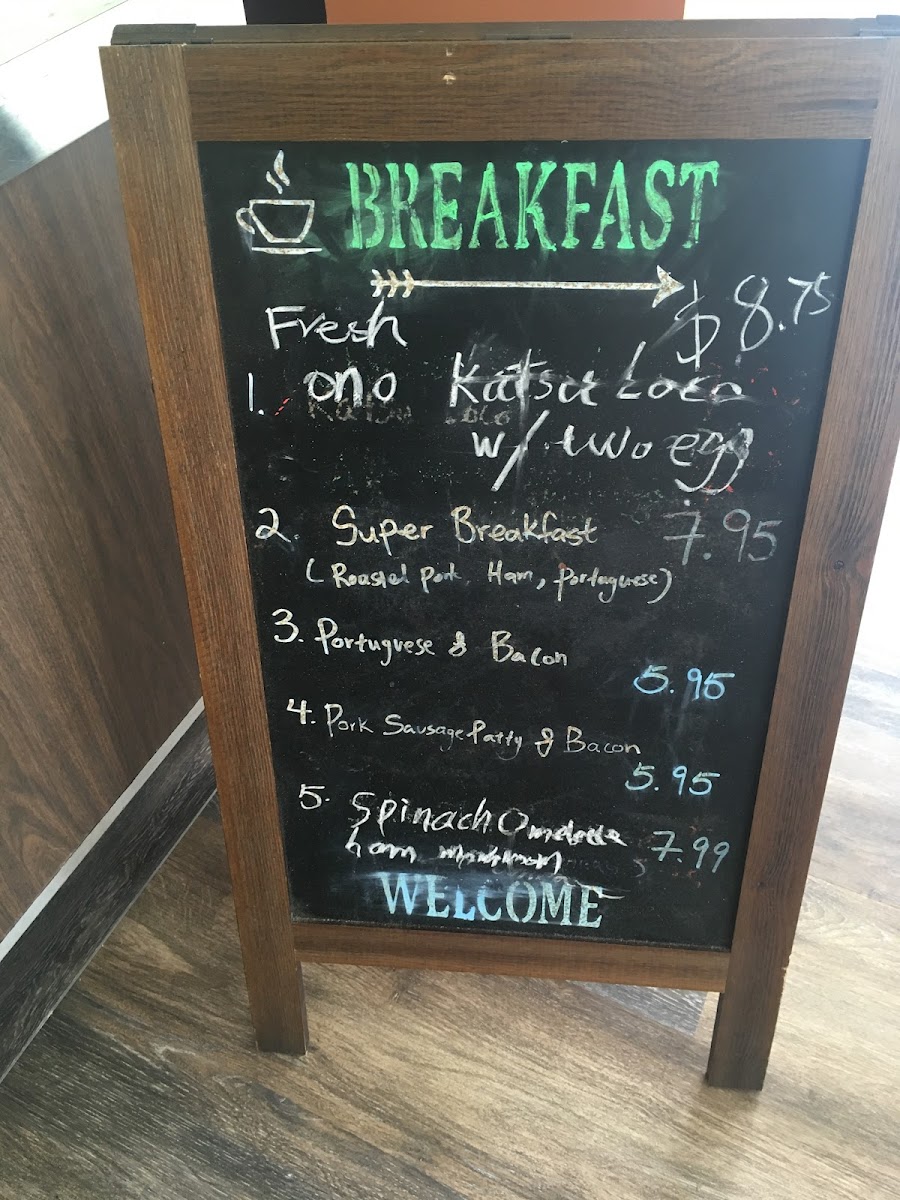 BREAKFAST
Fresh $8.75
1. ono Katsu Loco
w/ two egg
2. Super Breakfast 7.95
(Roasted pork, Ham, portuguese)
3. Portuguese & Bacon
5.95
4. Pork Sausage Patty & Bacon
5.95
5. Spinach Omelette 7.99
ham
WELCOME